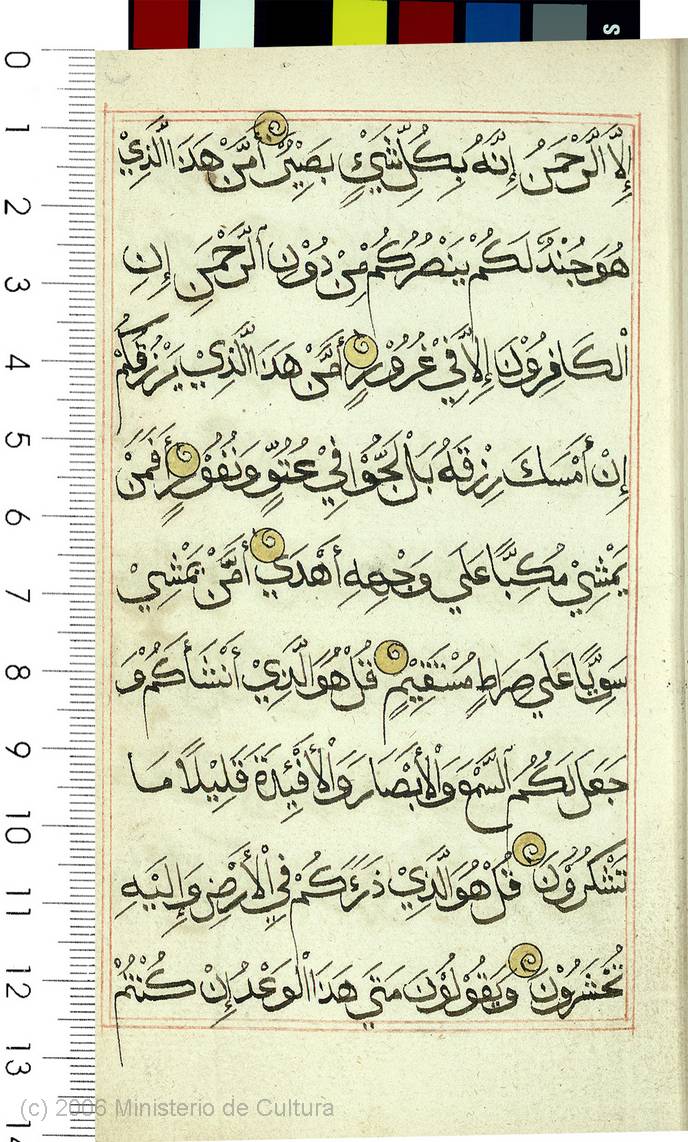 إِلَّا الرَّحْمَنُ إِنَّهُ بِكُلِّ شَيْءٍ بَصِيْرٌ أَمَّنْ هَذَا الَّذِيْ
هُوَ جُنْدٌ لَكُمْ يَنْصُرُكُمْ مِنْ دُوْنِ الرَّحْمَنِ إِنِ
الْكَافِرُوْنَ إِلَّا فِيْ غُرُوْرٍ أَمَّنْ هَذَا الَّذِيْ يَرْزُقُكُمْ
إِنْ أَمْسَكَ رِزْقَهُ بَلْ لَجُّوْا فِيْ عُتُوٍّ وَنُفُوْرٍ أَفَمَنْ
يَمْشِيْ مُكِبًّا عَلَي وَجْهِهِ أَهْدَي أَمَّنْ يَمْشِيْ
سَوِيًّا عَلَي صِرَاطٍ مُسْتَقِيْمٍ قُلْ هُوَ الَّذِيْ أَنْشَأَكُمْ وَ
جَعَلَ لَكُمُ السَّمْعَ وَالْأَبْصَارَ وَالْأَفْئِدَةَ قَلِيْلًا مَا
تَشْكُرُوْنَ قُلْ هُوَ الَّذِيْ ذَرَءَكُمْ فِيْ الْأَرْضِ وَإِلَيْهِ
تُحْشَرُوْنَ وَيَقُوْلُوْنَ مَتَي هَذَا الْوَعْدُ إِنْ كُنْتُمْ
0
1
2
3
4
5
6
7
8
9
10
11
12
13
14
S
(c) 2006 Ministerio de Cultura